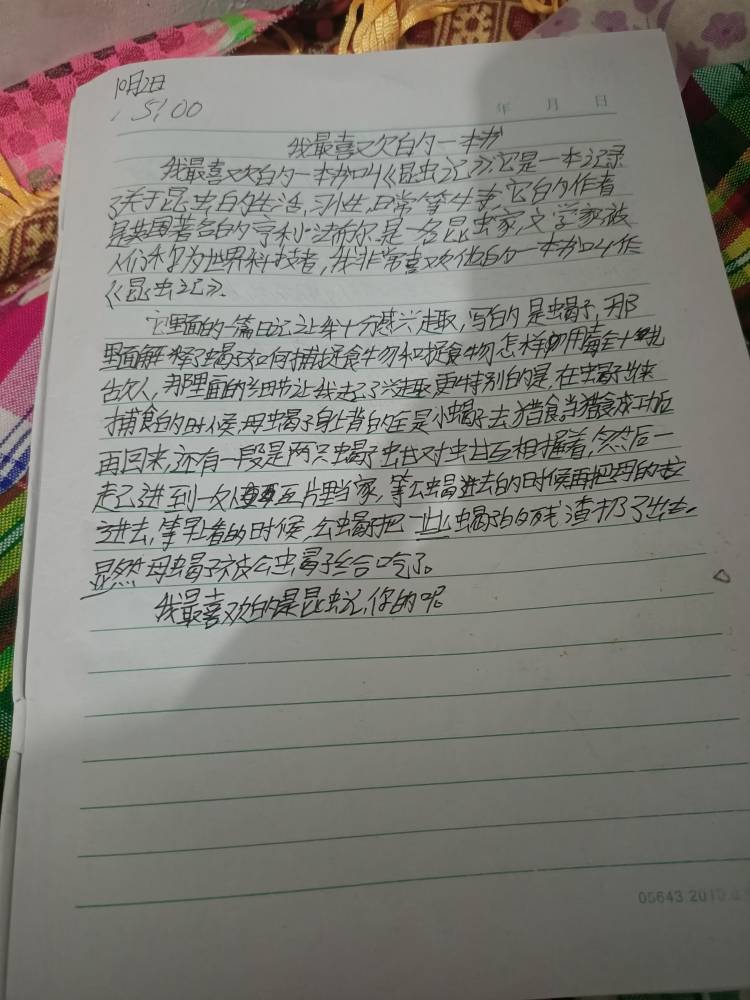 10月2日
15:00
年 月 日
我最喜欢的一本书
我最喜欢的一本书叫《昆虫记》,它是一本记录
了关于昆虫的生活,习性,日常等生事,它的作者
是英国著名的亨利·法布尔,是一名昆虫家,文学家被
人们称为世界科技者,我非常喜欢他的一本书叫作
《昆虫记》.
它里面的一篇日记让我十分感兴趣,写的是虫蝎子,那
里面解释了虫蝎子如何捕捉食物和捉食物怎样的用毒全
那里面的细节让我起了兴趣更特别的是,在虫蝎子出来
捕食的时候,母虫蝎子身上背的全是小虫蝎子去猎食当猎食成功后
再回来,还有一段是两只虫蝎子钳对钳互相握着,然后一
起进到一个瓦片里当家,等公虫蝎进去的时候再把母的
进去,等早着的时候,公虫蝎子把一些虫蝎子的残渣扔了出去.
显然母虫蝎子被公虫蝎子给合吃了。
我最喜欢的是昆虫记,你的呢。
05643.2010.